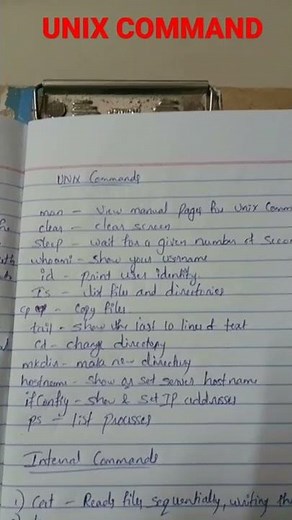 UNIX COMMAND
UNIX Commands
man - View manual pages for Unix Comm
clear - clear screen
sleep - wait for a given number of secon
whoami - show your username
id - print user identity
ls - list files and directories
cp - copy files
tail - show the last 10 lines of text
cd - change directory
mkdir - make directory
hostname - show or set server hostname
ifconfig - show & set IP addresses
ps - list processes
Internal Commands
1) Cat - Reads files sequentially, writing th